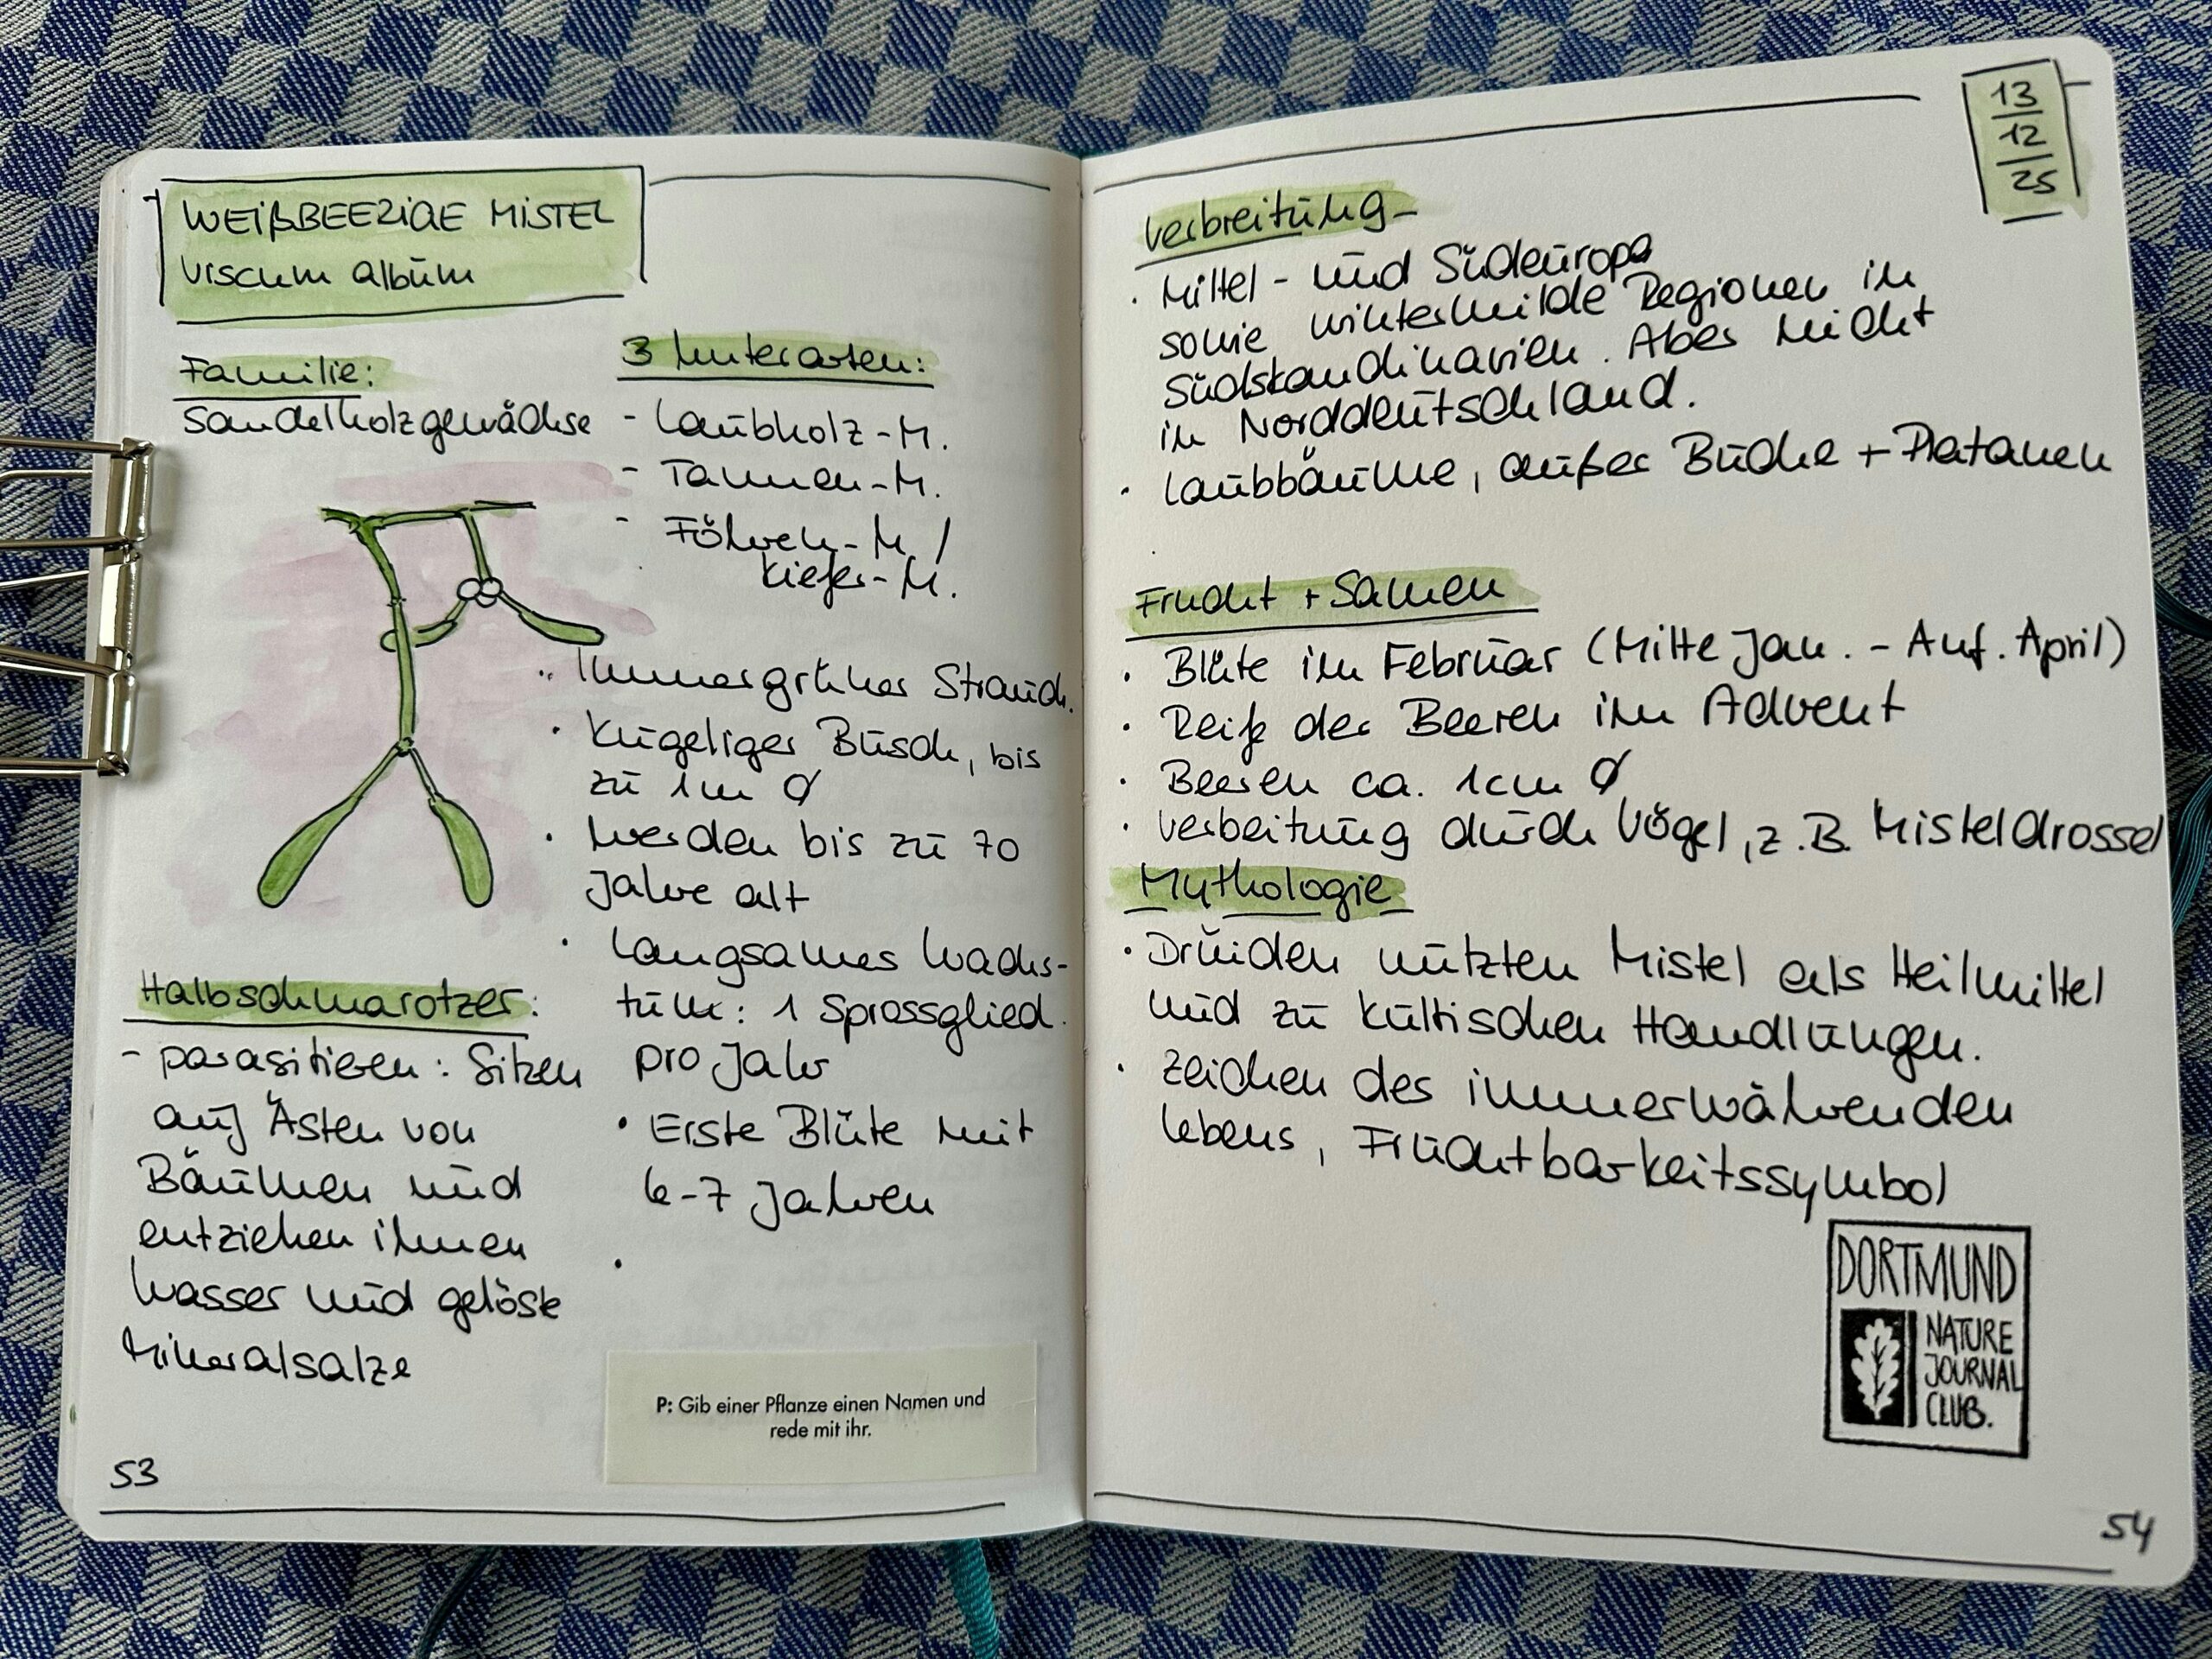 WEIßBEERIGE MISTEL
Viscum album
Familie:
Sandelholzgewächse
3 Unterarten:
- Laubholz-M.
- Tannen-M.
- Föhren-M. /
Kiefer-M.
· Immergrüner Strauch.
· Kugeliger Busch, bis
zu 1m Ø
· Werden bis zu 70
Jahre alt
· Langsames Wachs-
tum: 1 Sprossglied
pro Jahr
· Erste Blüte mit
6-7 Jahren
·
Halbschmarotzer:
- parasitieren: Sitzen
auf Ästen von
Bäumen und
entziehen ihnen
Wasser und gelöste
Mineralsalze
P: Gib einer Pflanze einen Namen und
rede mit ihr.
53
13
12
25
Verbreitung
· Mittel- und Südeuropa
sowie wintermilde Regionen in
Südskandinavien. Aber nicht
in Norddeutschland.
· Laubbäume, außer Buche + Platanen
Frucht + Samen
· Blüte im Februar (Mitte Jan. - Anf. April)
· Reife der Beeren im Advent
· Beeren ca. 1cm Ø
· Verbeitung durch Vögel, z.B. Misteldrossel
Mythologie
· Druiden nutzten Mistel als Heilmittel
und zu kultischen Handlungen.
· Zeichen des immerwährenden
Lebens, Fruchtbarkeitssymbol
DORTMUND
NATURE
JOURNAL
CLUB.
54